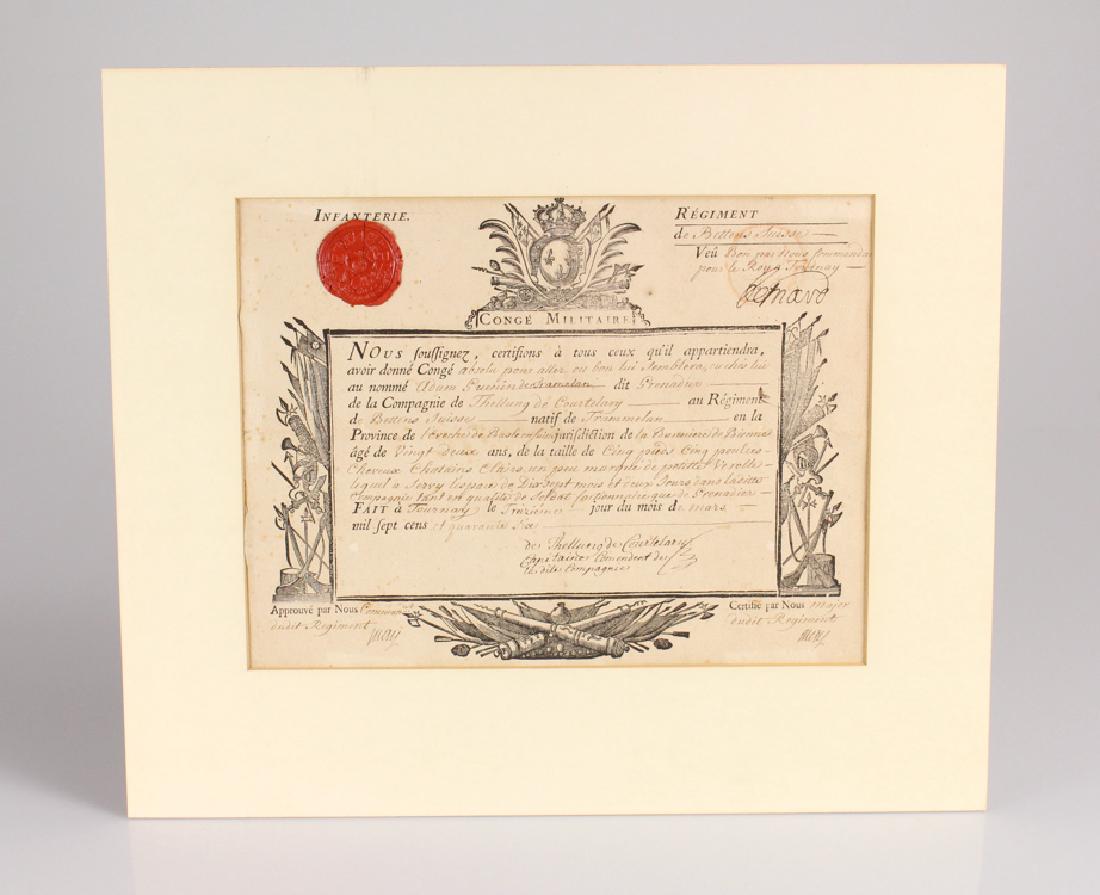 INFANTERIE.
RÉGIMENT
de Bettens Suisse
Veû Bon par Nous Commandant
pour le Roy a Tournay
CONGÉ MILITAIRE
NOUS soussignez, certifions à tous ceux qu'il appartiendra,
avoir donné Congé absolu pour aller ou bon lui semblera,
au nommé Adam dit Grenadier
de la Compagnie de Thellung de Courtelary au Régiment
de Bettens Suisse natif de Trammelan en la
Province de jurisdiction de la
âgé de Vingt deux ans, de la taille de Cinq pieds Cinq pouces
Cheveux Chatains Clairs, un peu marqué de petitte Verolle
lequel a Servy Lespace de Dix Sept mois et deux Jours dans laditte
Compagnie tant en qualité de Soldat que de Grenadier
FAIT à Tournay le Trezième jour du mois de mars
mil sept cens et quarante Six
de Thellung de Courtelary
Capitaine Comendent de
la dite Compagnie
Approuvé par Nous
dudit Regiment
Certifié par Nous major
dudit Regiment